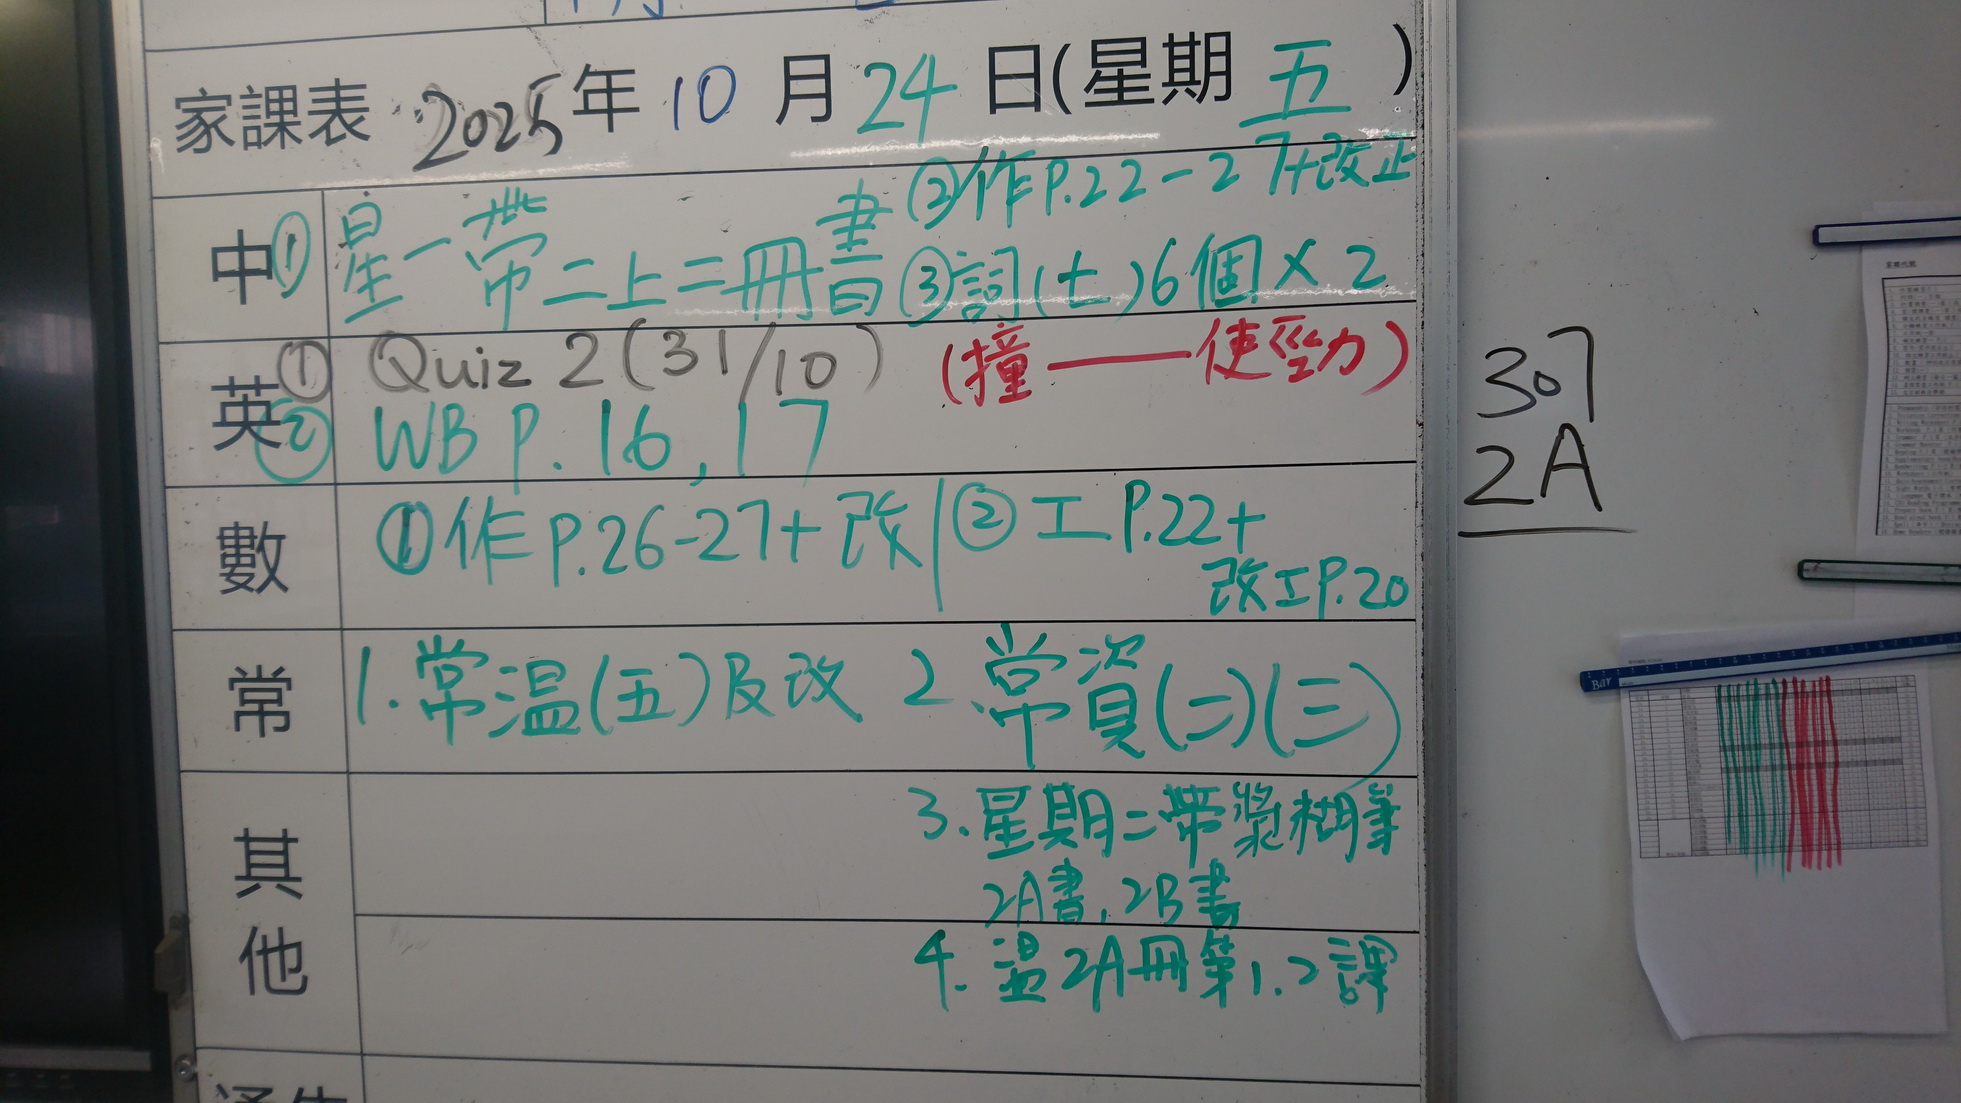 家課表 2025年 10 月 24 日(星期 五 )
中 ① 星一帶二上二冊書 ②作P.22-27+改正
③詞(七)6個×2
英 ① Quiz 2 (31/10) (撞——使勁力)
② WB P. 16, 17
數 ①作P.26-27+改 ② 工P.22+
改工P.20
常 1.常温(五)及改 2.常資(二)(三)
3.星期二帶漿糊筆
2A書, 2B書
4. 温2A冊第1.2課
其他
307
2A
BAY